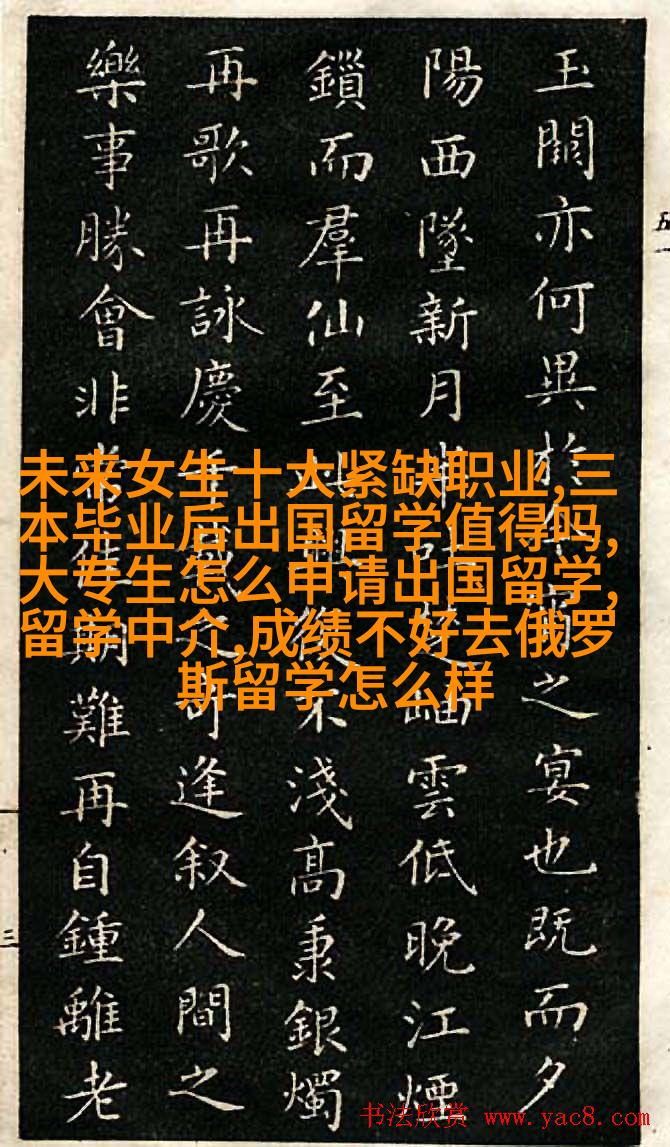 玉闕亦何異於之宴也既而夕
陽西墜新月岫雲低晚江煙
鎖而羣仙至不淺高秉銀燭
再歌再詠慶千載之奇逢叙人間之
樂事勝會非常佳期難再自鍾離老
未来女生十大紧缺职业,三
本毕业后出国留学值得吗,
大专生怎么申请出国留学,
留学中介,成绩不好去俄罗
斯留学怎么样
五
三
书法欣赏 www.yac8.com